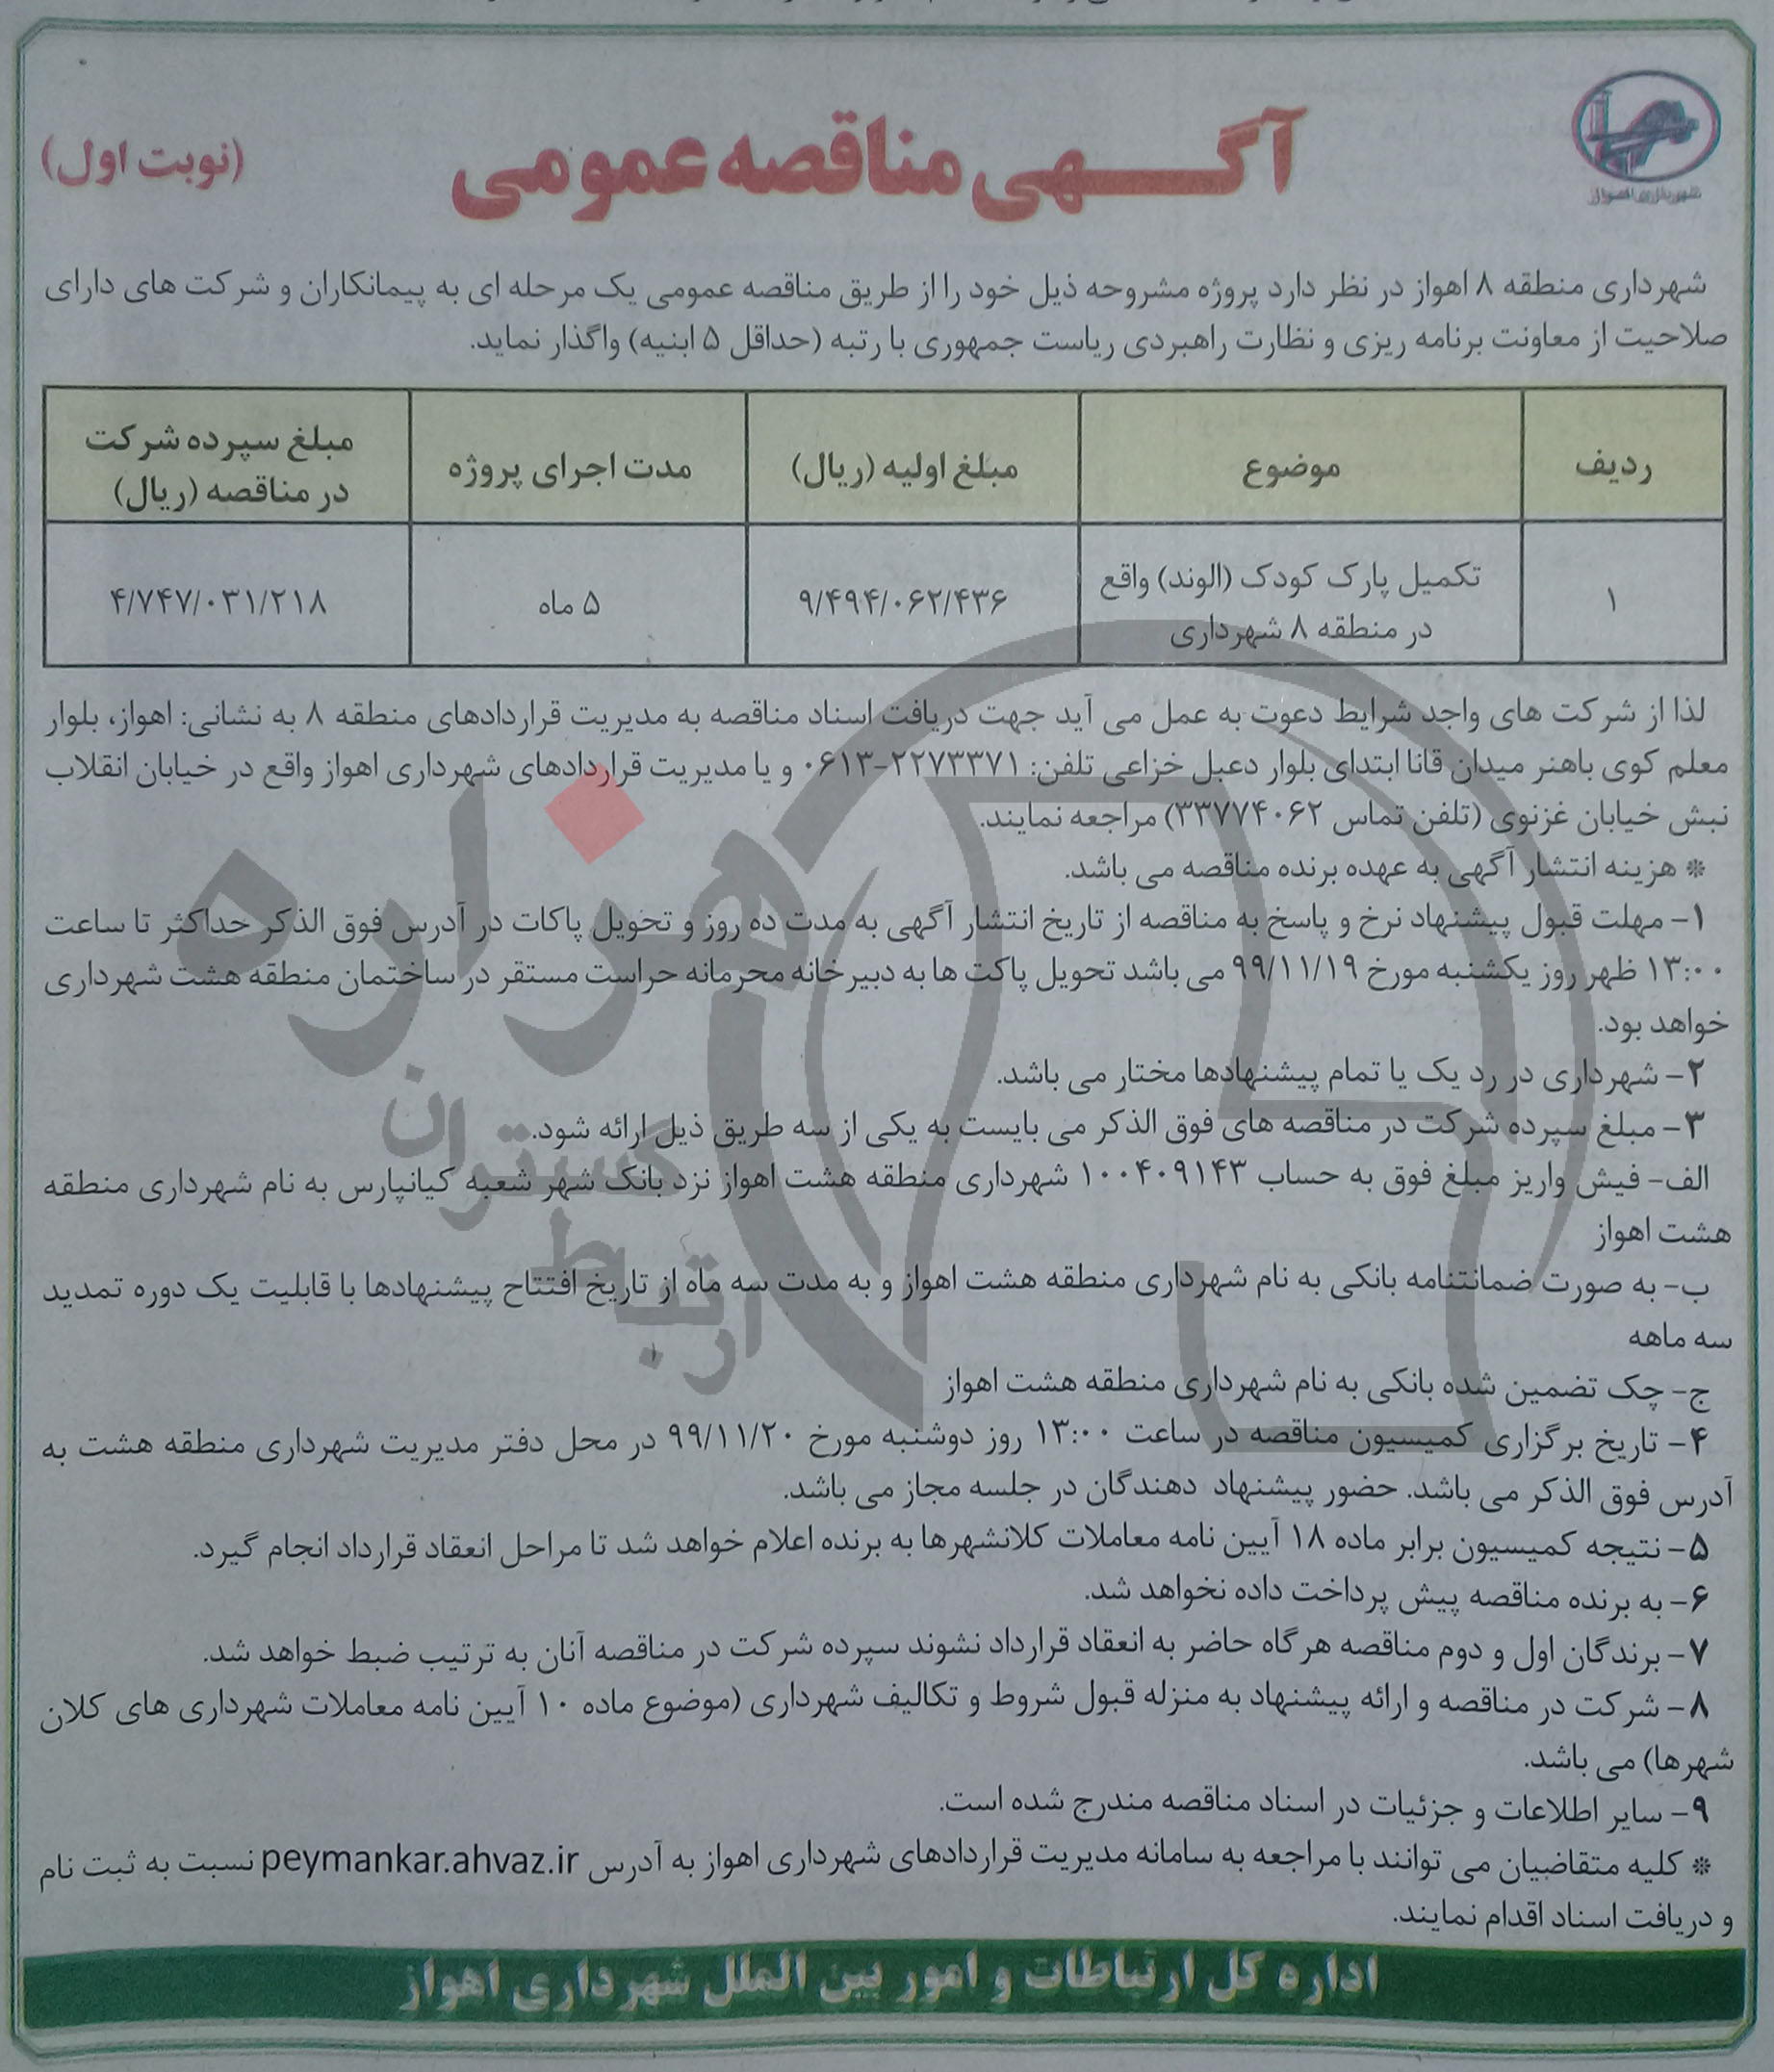 شهرداری اهواز
آگهی مناقصه عمومی
(نوبت اول)
شهرداری منطقه ۸ اهواز در نظر دارد پروژه مشروحه ذیل خود را از طریق مناقصه عمومی یک مرحله ای به پیمانکاران و شرکت های دارای
صلاحیت از معاونت برنامه ریزی و نظارت راهبردی ریاست جمهوری با رتبه (حداقل ۵ ابنیه) واگذار نماید.
ردیف
موضوع
مبلغ اولیه (ریال)
مدت اجرای پروژه
مبلغ سپرده شرکت
در مناقصه (ریال)
۱
تکمیل پارک کودک (الوند) واقع
در منطقه ۸ شهرداری
۹/۴۹۴/۰۶۲/۴۳۶
۵ ماه
۴/۷۴۷/۰۳۱/۲۱۸
لذا از شرکت های واجد شرایط دعوت به عمل می آید جهت دریافت اسناد مناقصه به مدیریت قراردادهای منطقه ۸ به نشانی: اهواز، بلوار
معلم کوی باهنر میدان قانا ابتدای بلوار دعبل خزاعی تلفن: ۲۲۷۳۳۷۱-۰۶۱۳ و یا مدیریت قراردادهای شهرداری اهواز واقع در خیابان انقلاب
نبش خیابان غزنوی (تلفن تماس ۳۳۷۷۴۰۶۲) مراجعه نمایند.
* هزینه انتشار آگهی به عهده برنده مناقصه می باشد.
۱- مهلت قبول پیشنهاد نرخ و پاسخ به مناقصه از تاریخ انتشار آگهی به مدت ده روز و تحویل پاکات در آدرس فوق الذکر حداکثر تا ساعت
۱۳:۰۰ ظهر روز یکشنبه مورخ ۹۹/۱۱/۱۹ می باشد تحویل پاکت ها به دبیرخانه محرمانه حراست مستقر در ساختمان منطقه هشت شهرداری
خواهد بود.
۲- شهرداری در رد یک یا تمام پیشنهادها مختار می باشد.
۳- مبلغ سپرده شرکت در مناقصه های فوق الذکر می بایست به یکی از سه طریق ذیل ارائه شود.
الف- فیش واریز مبلغ فوق به حساب ۱۰۰۴۰۹۱۴۳ شهرداری منطقه هشت اهواز نزد بانک شهر شعبه کیانپارس به نام شهرداری منطقه
هشت اهواز
ب- به صورت ضمانتنامه بانکی به نام شهرداری منطقه هشت اهواز و به مدت سه ماه از تاریخ افتتاح پیشنهادها با قابلیت یک دوره تمدید
سه ماهه
ج- چک تضمین شده بانکی به نام شهرداری منطقه هشت اهواز
۴- تاریخ برگزاری کمیسیون مناقصه در ساعت ۱۳:۰۰ روز دوشنبه مورخ ۹۹/۱۱/۲۰ در محل دفتر مدیریت شهرداری منطقه هشت به
آدرس فوق الذکر می باشد. حضور پیشنهاد دهندگان در جلسه مجاز می باشد.
۵- نتیجه کمیسیون برابر ماده ۱۸ آیین نامه معاملات کلانشهرها به برنده اعلام خواهد شد تا مراحل انعقاد قرارداد انجام گیرد.
۶- به برنده مناقصه پیش پرداخت داده نخواهد شد.
۷- برندگان اول و دوم مناقصه هرگاه حاضر به انعقاد قرارداد نشوند سپرده شرکت در مناقصه آنان به ترتیب ضبط خواهد شد.
۸- شرکت در مناقصه و ارائه پیشنهاد به منزله قبول شروط و تکالیف شهرداری (موضوع ماده ۱۰ آیین نامه معاملات شهرداری های کلان
شهرها) می باشد.
۹- سایر اطلاعات و جزئیات در اسناد مناقصه مندرج شده است.
* کلیه متقاضیان می توانند با مراجعه به سامانه مدیریت قراردادهای شهرداری اهواز به آدرس peymankar.ahvaz.ir نسبت به ثبت نام
و دریافت اسناد اقدام نمایند.
اداره کل ارتباطات و امور بین الملل شهرداری اهواز
هزاره
گستران
ارتباط